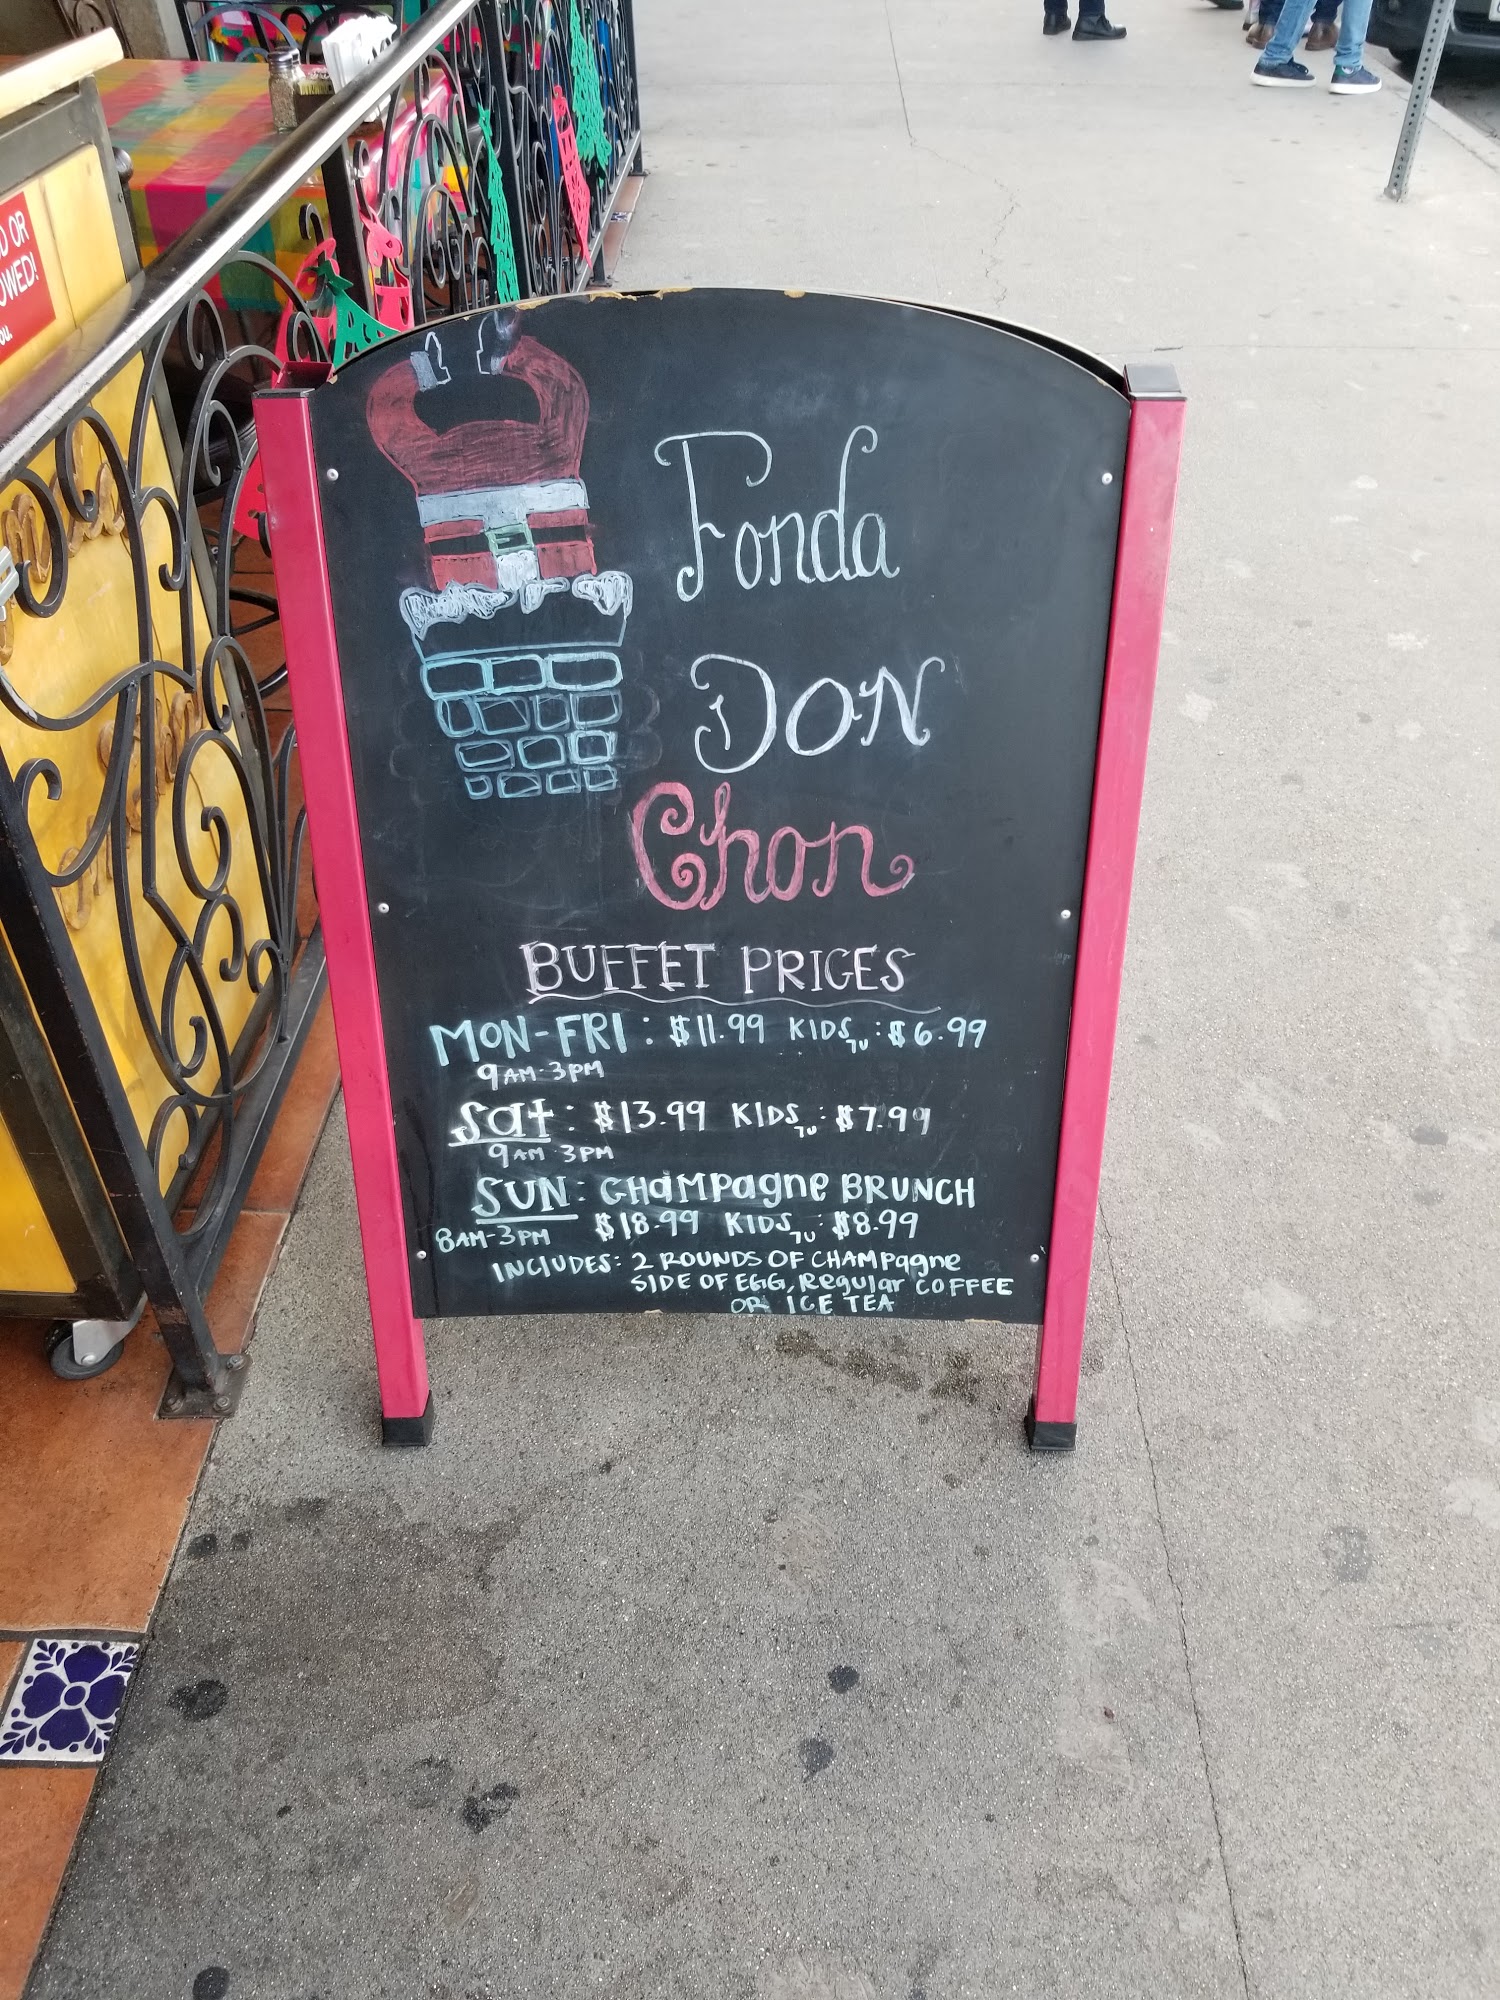 D OR
OWED!
ou.
Fonda
DON
Chon
BUFFET PRICES
MON-FRI: $11.99 KIDS TU: $6.99
9AM-3PM
Sat: $13.99 KIDS TU: $7.99
9AM 3PM
SUN: CHAMPagne BRUNCH
8AM-3PM $18.99 KIDS TU: $8.99
INCLUDES: 2 ROUNDS OF CHAMPagne
SIDE OF EGG, Regular COFFEE
OR ICE TEA